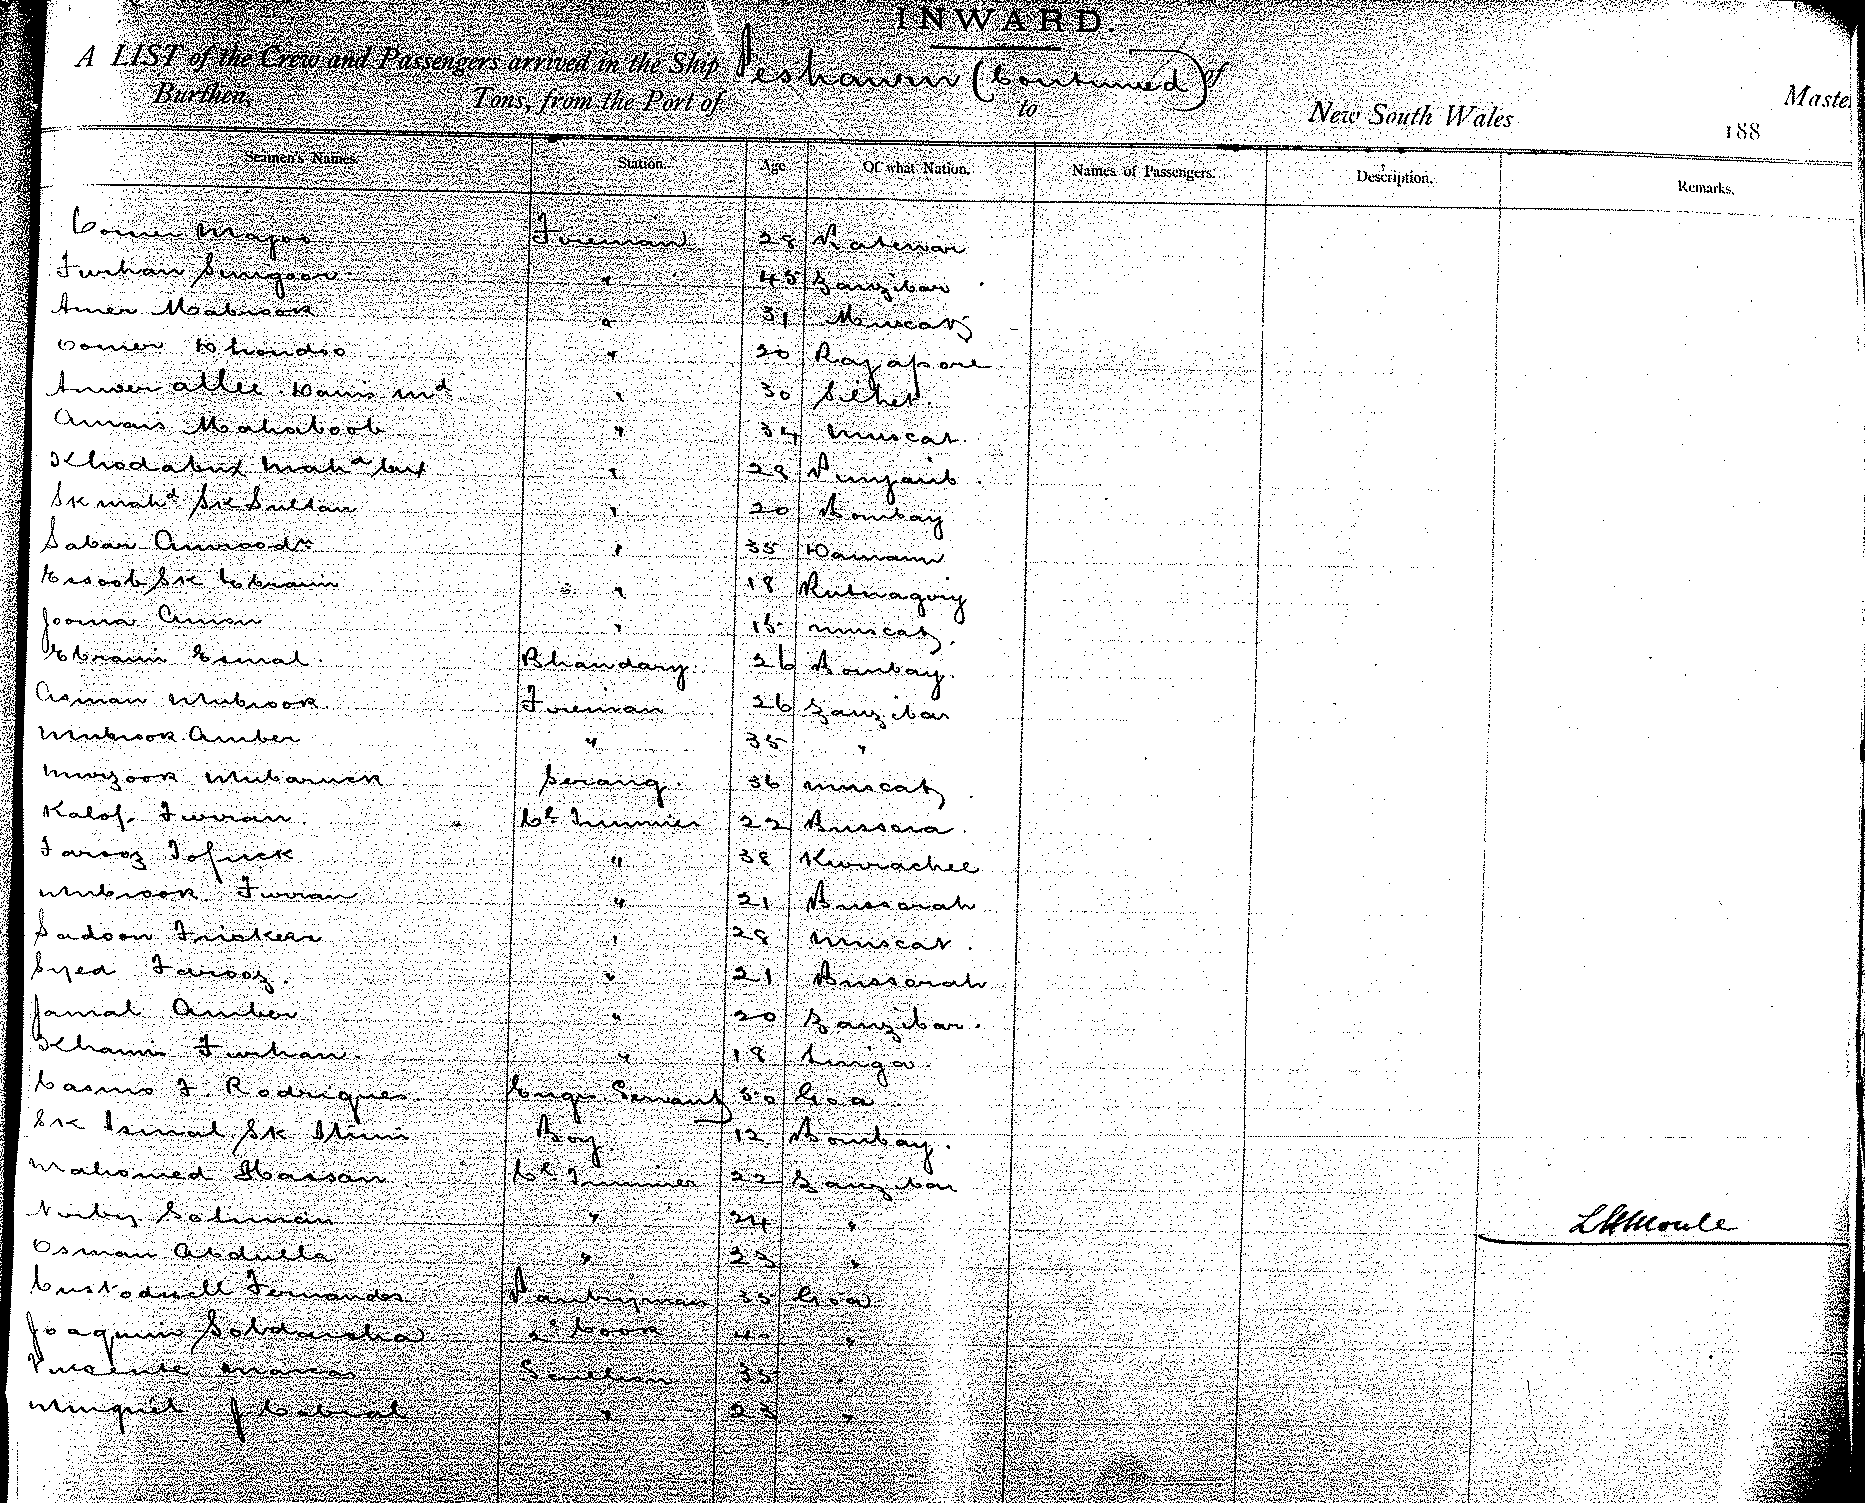 INWARD.
A LIST of the Crew and Passengers arrived in the Ship Peshawur (Continued) of
Burthen, Tons, from the Port of to New South Wales Master
188
Seamen's Names. Station. Age Of what Nation. Names of Passengers. Description. Remarks.
Comer Majoo Fireman 28 Katewar
Furhan Sungoor " 45 Zanzibar
Amer Mabrook " 31 Muscat
Comer Dhondoo " 20 Rajapore
Anwer allee md " 30 Silhet.
Mahaboob " 34 Muscat.
Khodabux Mahd bux " 28 Punjaub.
Sk mahd Sk Sultan " 20 Bombay
Saban " 35 Damaun
Essoob Sk Ebraim " 18 Rutnagiry
Jooma " 15 Muscat.
Ebraim Esmal. Bhandary. 26 Bombay.
Asman Mubrook Fireman 26 Zanzibar
Mubrook Amber " 35 "
Murzook Mubaruck Serang. 36 Muscat
Kalof Furran. Cl Trimmer 22 Bussora.
Farooz Tofuck " 38 Kurrachee
Mubrook Furran " 21 Bussorah
Sadoon " 28 Muscat.
Syed Farooz. " 21 Bussorah
Jamal Amber " 20 Zanzibar.
Khamis Furhan. " 18 Linga.
Casmo F. Rodrigues Engrs Servant 50 Goa
Sk Ismal Sk Boy. 12 Bombay.
Mahomed Hassan Cl Trimmer 22 Zanzibar
Soliman " 24 "
LHMoule
Osman Abdulla " 23 "
Fernandes Pantryman 35 Goa
Joaquim 2d Cook 40 "
Scullion 35
Minguel J Cabral " 23 "